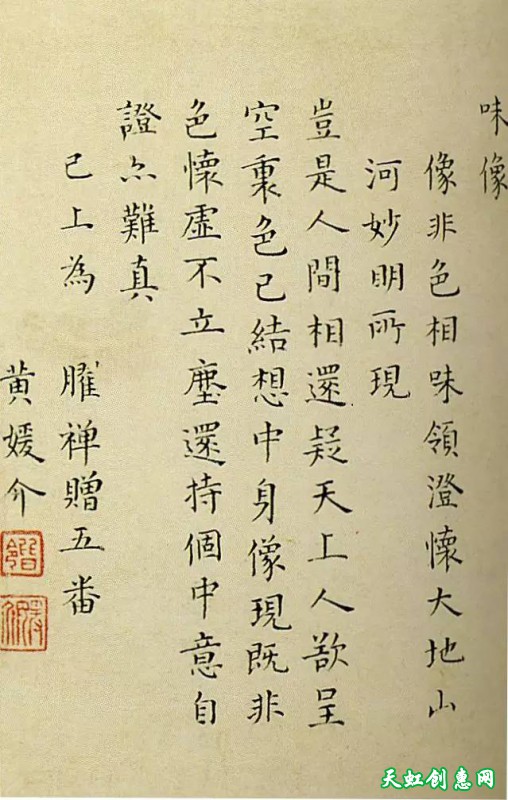 味像
像非色相味領澄懷大地山
河妙明所現
豈是人間相還疑天上人欲呈
空裏色已結想中身像現既非
色懷虛不立塵還持個中意自
證亦難真
已上為
臞禅贈五番
黄媛介
天虹创惠网